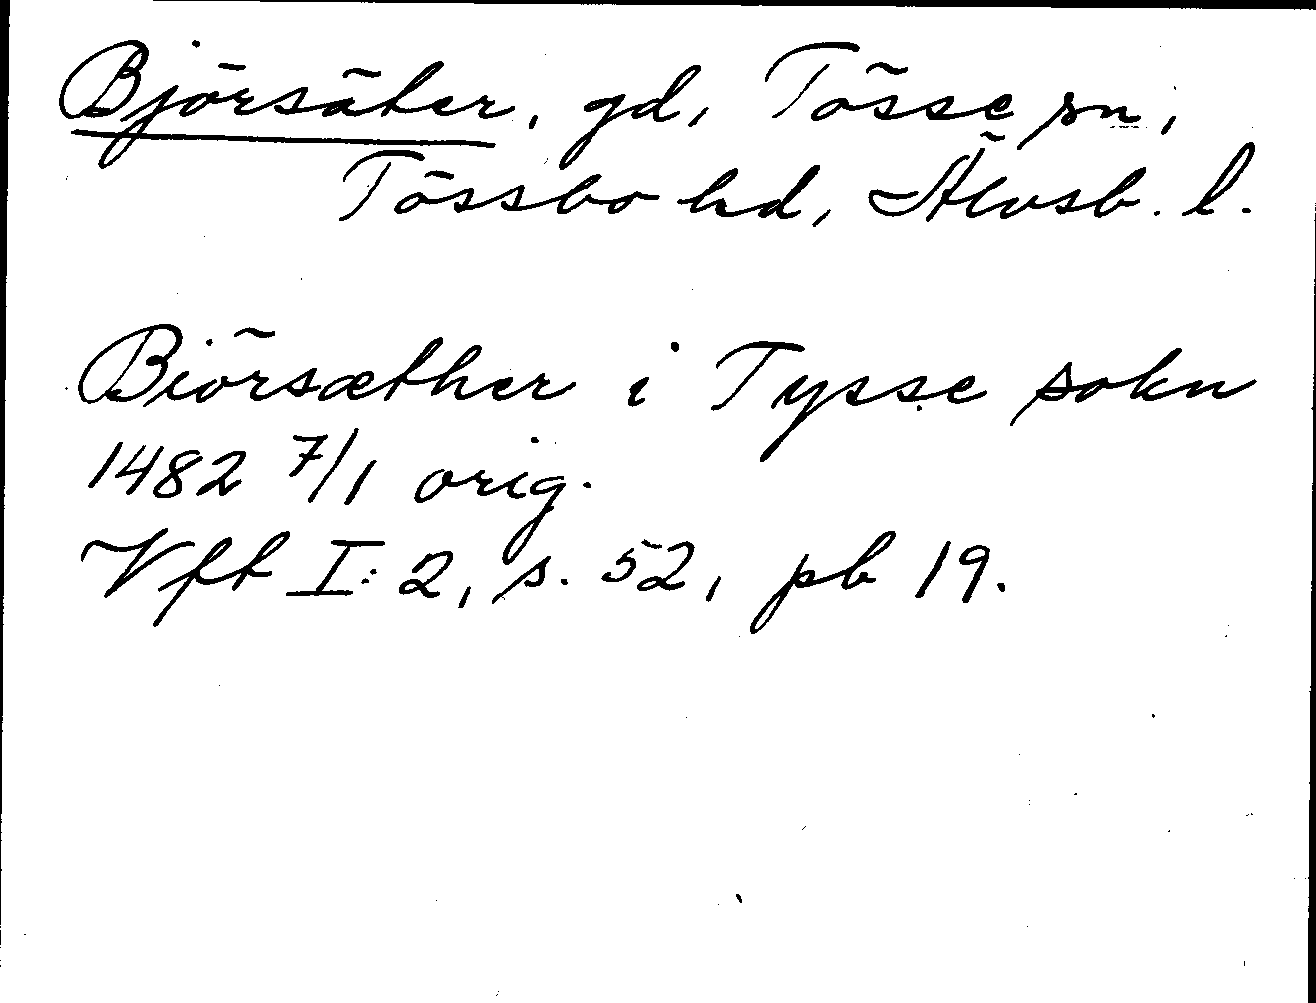 Björsäter, gd, Tösse sn,
Tössbo hd, Älvsb. l.
Biörsæther i Tysse sokn
1482 7/1 orig.
Vft I:2, s. 52, pb 19.